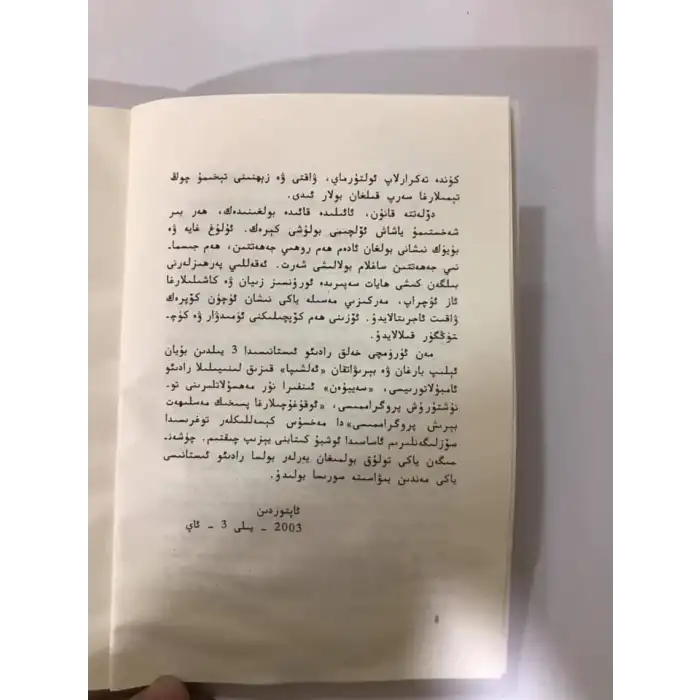 كۈندە تەكرارلاپ ئولتۇرماي، ۋاقتى ۋە زېھنىنى تېخىمۇ چوڭ
تېمىلارغا سەرپ قىلغان بولار ئىدى.
دۆلەتتە قانۇن، ئائىلىدە قائىدە بولغىنىدەك، ھەر بىر
شەخستىمۇ ياشاش ئۆلچىمى بولۇشى كېرەك. ئۇلۇغ غايە ۋە
بۈيۈك نىشانى بولغان ئادەم ھەم روھىي جەھەتتىن، ھەم جىسما-
نىي جەھەتتىن ساغلام بولالىشى شەرت. ئەقەللىي پەرھىزلەرنى
بىلگەن كىشى ھايات سەپىرىدە ئورۇنسىز زىيان ۋە كاشىلىلارغا
ئاز ئۇچراپ، مەركىزىي مەسىلە ياكى نىشان ئۈچۈن كۆپرەك
ۋاقىت ئاجرىتالايدۇ. ئۆزىنى ھەم كۆپچىلىكنى ئۈمىدۋار ۋە كۈچ-
تۈڭگۈر قىلالايدۇ.
مەن ئۈرۈمچى خەلق رادىئو ئىستانسىسدا 3 يىلدىن بۇيان
ئېلىپ بارغان ۋە بېرىۋاتقان «ئەلشىپا» قىزىق لىنىيىلىلا رادىئو
ئامبۇلاتورىيىسى، «سەييۇەن» ئىنفىرا نۇر مەھسۇلاتلىرىنى تو-
نۇشتۇرۇش پروگراممىسى، «ئوقۇغۇچىلارغا پىسخىك مەسلىھەت
بېرىش پروگراممىسى»دا مەخسۇس كېسەللىكلەر توغرىسىدا
سۆزلىگەنلىرىم ئاساسىدا ئوشبۇ كىتابنى يېزىپ چىقتىم. چۈشەن-
مىگەن ياكى تولۇق بولمىغان يەرلەر بولسا رادىئو ئىستانسىسى
ياكى مەندىن بىۋاسىتە سورىسا بولىدۇ.
ئاپتوردىن
2003 - يىلى 3 - ئاي
8